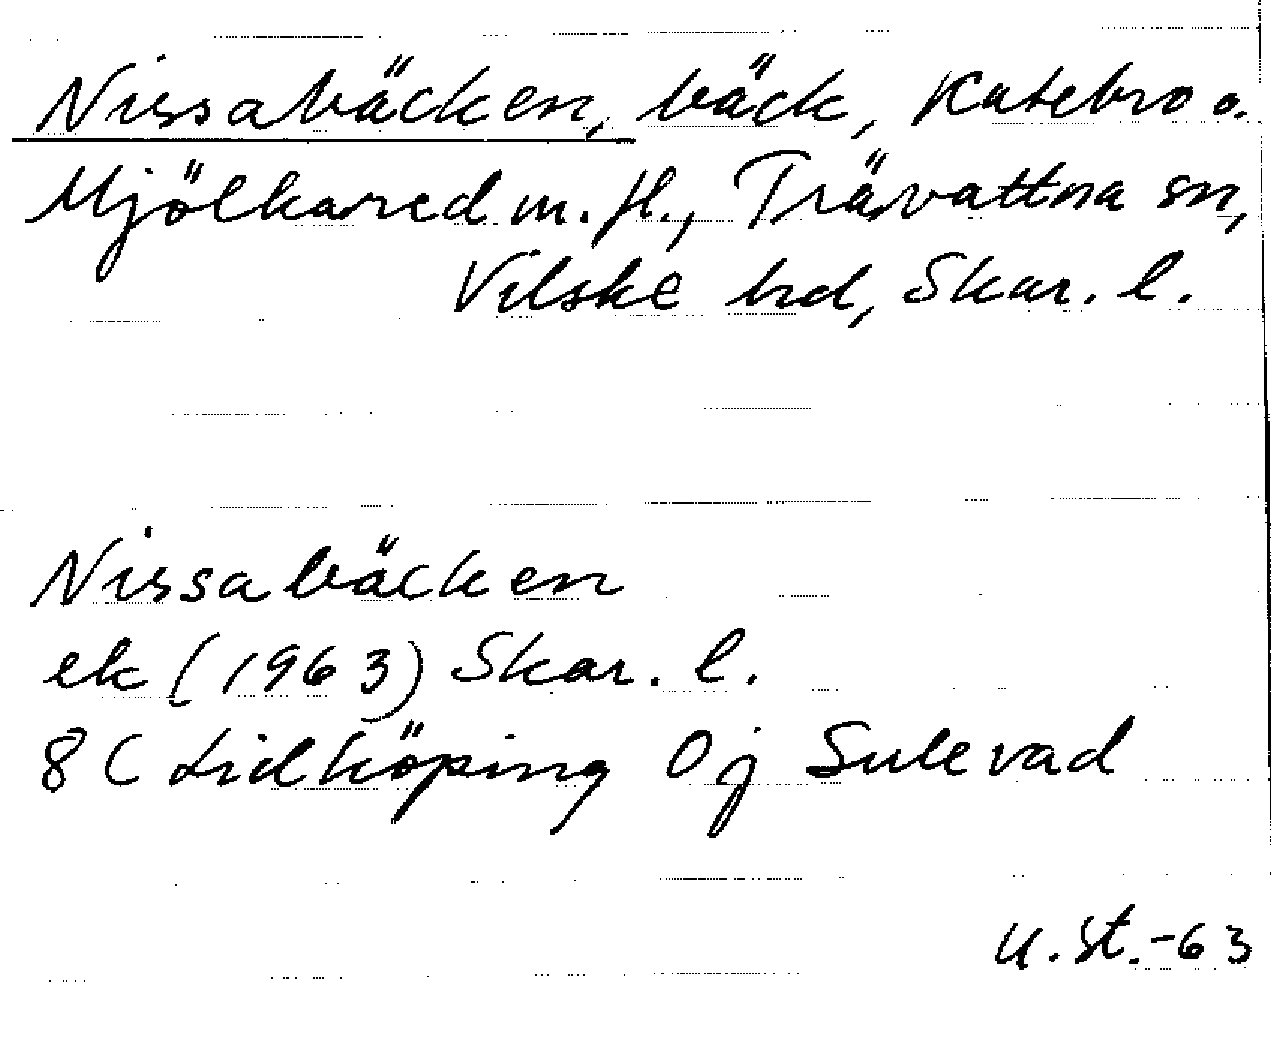 Nissabäcken, bäck, Katebro o.
Mjölkared m. fl., Trävattna sn,
Vilske hd, Skar. l.
Nissabäcken
ek (1963) Skar. l.
8 C Lidköping 0 j Sulevad
U. St. -63